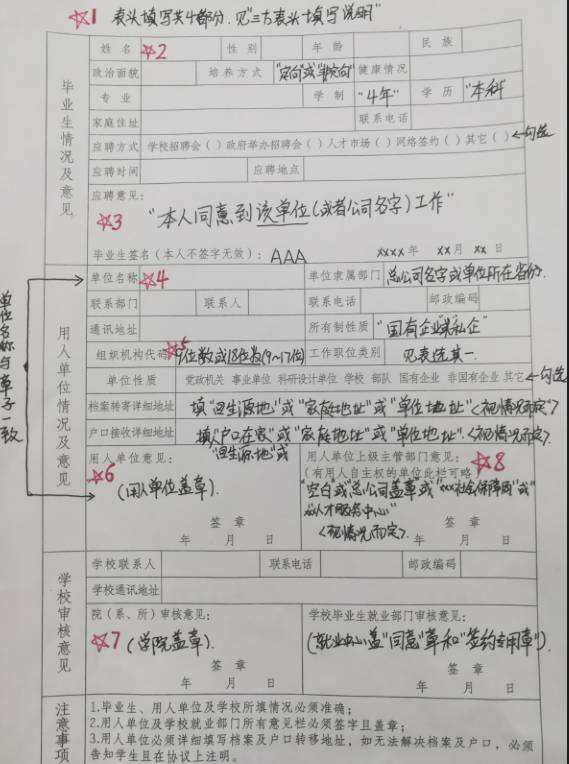 ☆1 表头填写共4部分.见"三方表头填写说明"
毕业生情况及意见
姓名 ☆2 性别 年龄 民族
政治面貌 培养方式 "定向"或"非定向" 健康情况
专业 学制 "4年" 学历 "本科"
家庭住址 联系电话
应聘方式 学校招聘会（ ）政府举办招聘会（ ）人才市场（ ）网络签约（ ）其它（ ） ←勾选
应聘时间 应聘地点
应聘意见：
☆3 "本人同意到该单位(或者公司名字)工作"
毕业生签名（本人不签字无效）： AAA xxxx 年 xx 月 xx 日
单位名称与章子一致
用人单位情况及意见
单位名称 ☆4 单位隶属部门 总公司名字或单位所在省份.
联系部门 联系人 联系电话 邮政编码
通讯地址 所有制性质 "国有企业"或"私企"
组织机构代码 ☆5 9位数或18位数(9~17位) 工作职位类别 见表选其一.
单位性质 党政机关 事业单位 科研设计单位 学校 部队 国有企业 非国有企业 其它 ←勾选
档案转寄详细地址 填"回生源地"或"家庭地址"或"单位地址"<视情况而定>
户口接收详细地址 填"户口在家"或"家庭地址"或"单位地址".<视情况而定>.
"回生源地"或
用人单位意见：
☆6
(用人单位盖章).
签章
年 月 日
用人单位上级主管部门意见：
（有用人自主权的单位此栏可略） ☆8
"空白"或"总公司盖章"或"xxx社会保障局"或
"xx人才服务中心"
<视情况而定>.
签章
年 月 日
学校审核意见
学校联系人 联系电话 邮政编码
学校通讯地址
院（系、所）审核意见：
☆7 (学院盖章).
签章
年 月 日
学校毕业生就业部门审核意见：
(就业中心盖"同意"章和"签约专用章").
签章
年 月 日
注意事项
1.毕业生、用人单位及学校所填情况必须准确；
2.用人单位及学校就业部门所有意见栏必须签字且盖章；
3.用人单位必须详细填写档案及户口转移地址，如无法解决档案及户口，必须
告知学生且在协议上注明。